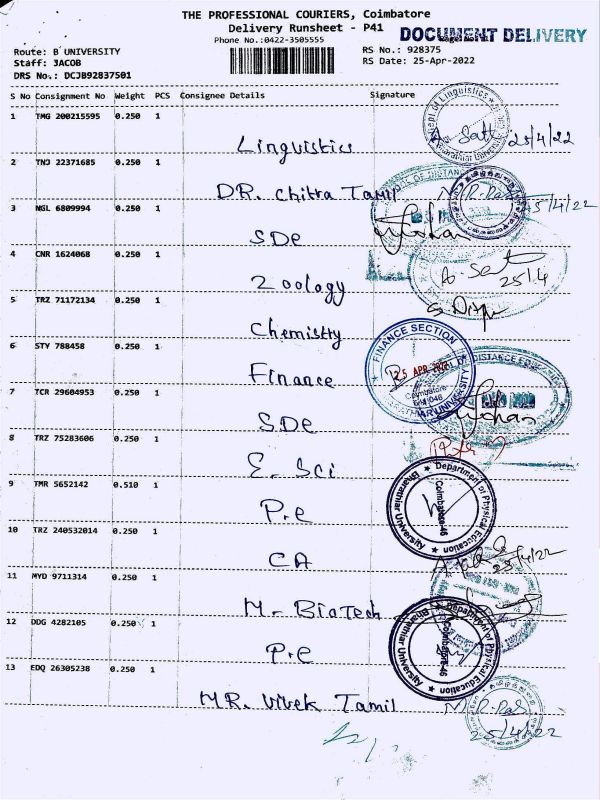 THE PROFESSIONAL COURIERS, Coimbatore
Delivery Runsheet - P41
DOCUMENT DELIVERY
Phone No.:0422-3505555
Route: B UNIVERSITY
RS No.: 928375
Staff: JACOB
RS Date: 25-Apr-2022
DRS No.: DCJB92837501
S No Consignment No Weight PCS Consignee Details Signature
1 TMG 200215595 0.250 1
Linguistics 25/4/22
2 TNJ 22371685 0.250 1
DR. Chitra Tamil
3 NGL 6809994 0.250 1
SDe
4 CNR 1624068 0.250 1
Zoology 25/4
5 TRZ 71172134 0.250 1
Chemistry
6 STY 788458 0.250 1
Finance
FINANCE SECTION
25 APR 2022
Coimbatore
BHARATHIAR UNIVERSITY
7 TCR 29604953 0.250 1
SDe
DISTANCE EDUCATION
8 TRZ 75283606 0.250 1
E. Sci
9 TMR 5652142 0.510 1
P.e
Department of Physical Education
Bharathiar University
Coimbatore-46
10 TRZ 240532014 0.250 1
CA
11 MYD 9711314 0.250 1
M. BioTech
12 DDG 4282105 0.250 1
P.e
Department of Physical Education
Bharathiar University
Coimbatore-46
13 EDQ 26305238 0.250 1
MR. Vivek Tamil
25/4/22